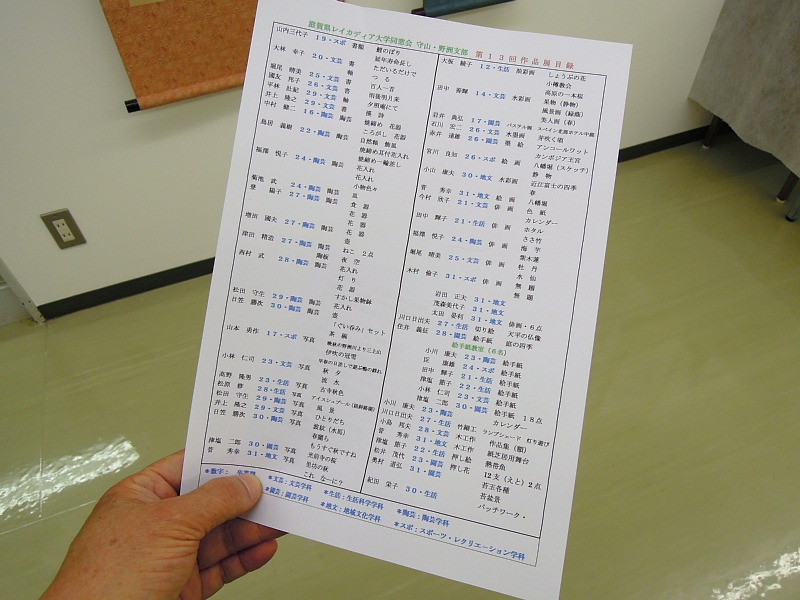 滋賀県レイカディア大学同窓会 守山・野洲支部 第13回作品展目録
山内三代子 19・スポ 書額 鯉のぼり
大林 幸子 20・文芸 書 延年寿命長し
書 ただいるだけで
堀尾 晴美 25・文芸 軸 つる
國友 邦子 26・文芸 書 百人一首
平林 壮紀 29・文芸 書 明後切月来
井上 隆之 29・文芸 軸
中村 健二 16・陶芸 陶芸
焼締め 花器
島居 義樹 22・陶芸 陶芸 ころがし 花器
自然釉 焼皿
焼締め耳付花入れ
福澤 悦子 24・陶芸 陶芸 焼締め一輪差し
花入れ
花入れ
菊池 武 24・陶芸 陶芸 小物色々
登 陽子 27・陶芸 陶芸 皿
食器
花器
増田 國夫 27・陶芸 陶芸 花器
津田 精造 27・陶芸 陶芸 壷
西村 武 28・陶芸 陶板 ねこ 2点
陶芸 夜空
花入れ
灯り
花器
松田 守生 29・陶芸 陶芸 すかし果物鉢
日笠 勝次 30・陶芸 陶芸 花入れ
壷
「ぐい呑み」セット
山本 勇作 17・スポ 写真 茶碗
晩秋の野洲川より三上山
伊吹の冠雪
小林 仁司 23・文芸 写真
秋夕
流木
高野 隆男 23・生活 写真 古寺秋色
松原 修 28・生活 写真
松田 守生 29・陶芸 写真 風景
井上 隆之 29・文芸 写真 ひとりだち
日笠 勝次 30・陶芸 写真 波紋(水馬)
春闌も
もうすぐ秋ですね
津塩 二郎 30・園芸 写真 光前寺の桜
菅 秀幸 31・地文 写真 里坊の秋
これ なーに?
大坂 綾子 12・生活 絵彩画 しょうぶの花
小樽教会
田中 善輝 14・文芸 水彩画 高原の一本桜
果物(静物)
風景画(緑蔭)
美人画(春)
岩井 典弘 17・園芸 パステル画
石川 宏二 26・文芸 水墨画 芽吹く頃
赤井 達雄 26・園芸 墨絵 アンコールワット
カンボジア王宮
宮川 良知 26・スポ 絵画 八幡堀(スケッチ)
静物
小山 康夫 30・地文 水彩画 近江富士の四季
春
菅 秀幸 31・地文 絵画 八幡堀
今村 欣子 21・文芸 俳画 色紙
カレンダー
田中 輝子 21・生活 俳画 ホタル
ささ竹
福澤 悦子 24・陶芸 俳画 梅芋
紫木蓮
堀尾 晴美 25・文芸 俳画 牡丹
水仙
木村 倫子 31・スポ 俳画 無題
無題
岩田 正夫 31・地文
茂森美代子 31・地文
太田 晏利 31・地文 俳画・6点
川口日出夫 27・生活 切り絵 天平の仏像
住井 義征 28・園芸 絵手紙 庭の四季
絵手紙教室(6名)
小川 康夫 23・陶芸 絵手紙
臣 康雄 24・スポ 絵手紙
田中 輝子 21・生活 絵手紙
津塩 節子 22・生活 絵手紙
小林 仁司 23・文芸 絵手紙
津塩 二郎 30・園芸 絵手紙 18点
小川 康夫 23・陶芸 カレンダー
川口日出夫 27・生活 竹細工 ランプシェード 灯り遊び
小島 邦夫 28・文芸 木工作 作品集(額)
菅 秀幸 31・地文 木工作 紙芝居用舞台
津塩 節子 22・生活 押し絵 熱帯魚
松井 茂代 23・園芸 押し花 12支(えと)2点
奥村 道弘 31・園芸 苔玉各種
苔盆景
紀田 栄子 30・生活 パッチワーク・
*数字:
*文芸:文芸学科 *生活:生活科学学科 *陶芸:陶芸学科
*園芸:園芸学科 *地文:地域文化学科 *スポ:スポーツ・レクリエーション学科